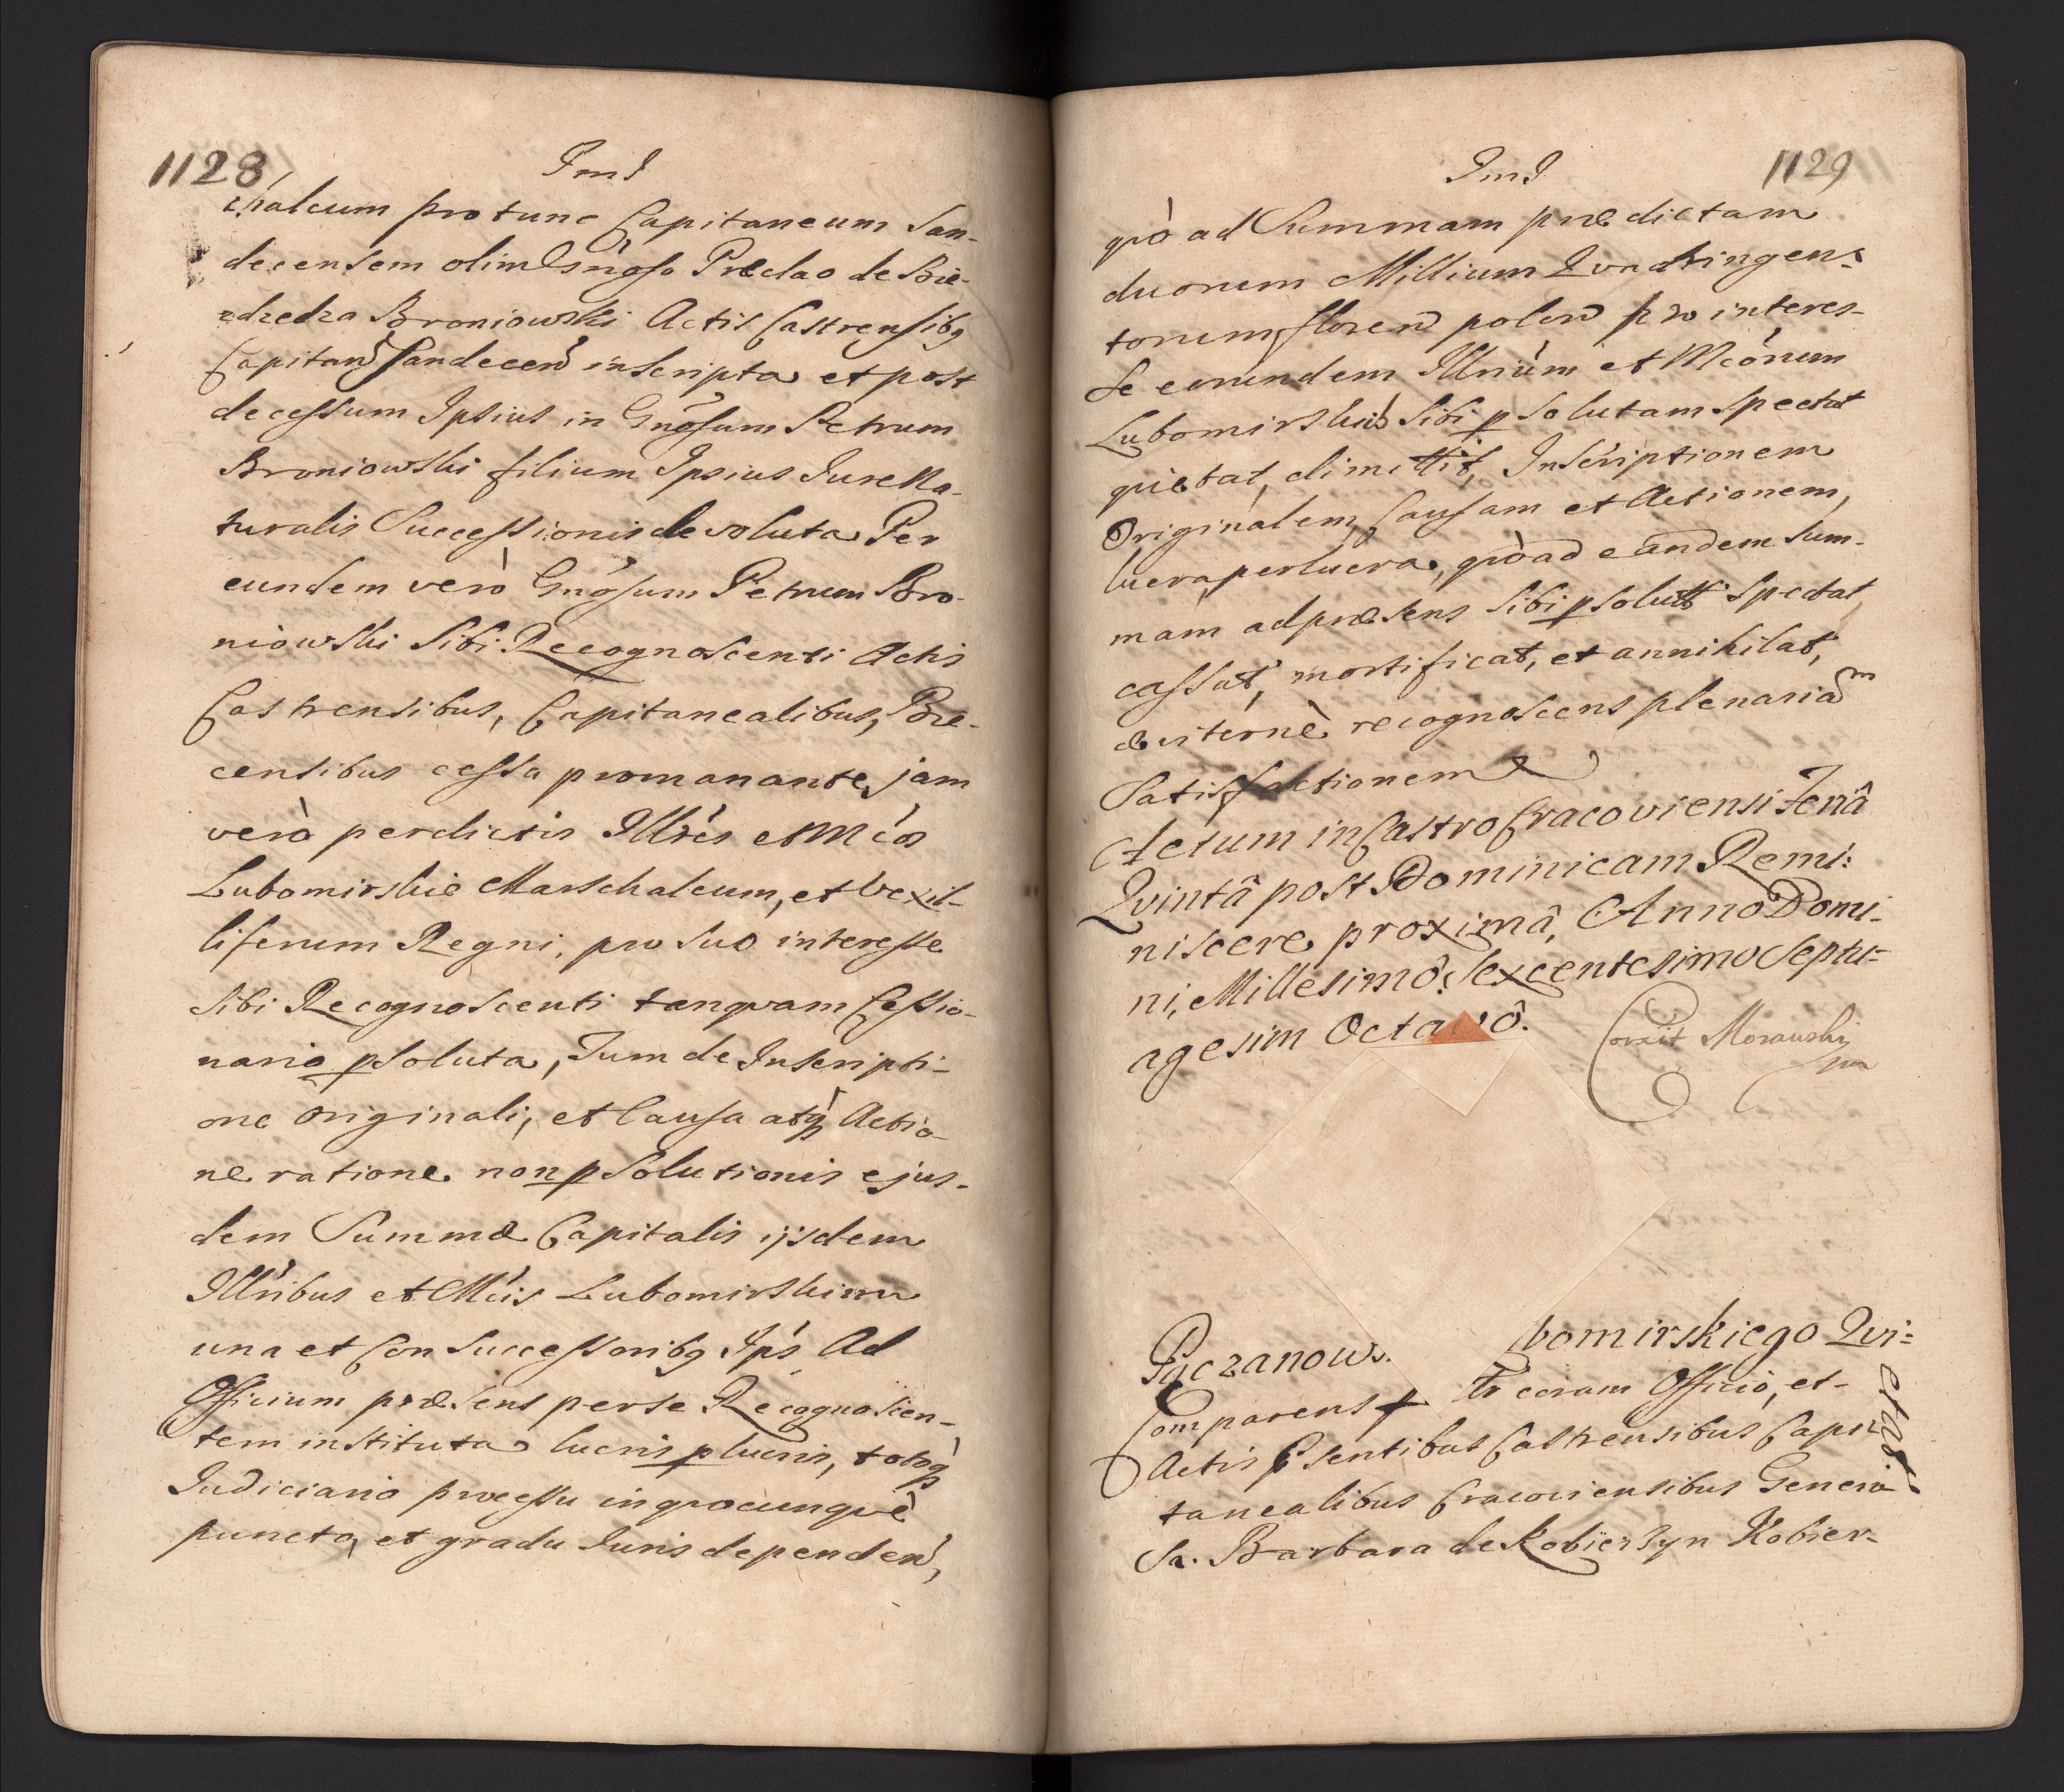 1128
chalcum pro tunc Capitaneum San-
decensem olim Gnoso Preclao de Bie-
Broniowski Actis Castrensibq
Capitan Sandecen inscripta et post
decessum Ipsius in Gnosum Petrum
Broniowski filium Ipsius Jure Na-
turalis Successionis devoluta Per
eundem verò Gnosum Petrum Bro-
niowski Sibi Recognoscenti Actis
Castrensibus, Capitanealibus, Bie-
censibus cessa promanante, jam
verò per dictis Illres et Mcos
Lubomirskie Marschalcum, et Vexil-
liferum Regni, pro suo interesse
Sibi Recognoscenti tanqvam Cessio-
nario psoluta, Tum de Inscripti-
one Originali, et Causa atq Actio-
ne ratione non psolutionis ejus-
dem Summæ Capitalis ijsdem
Illribus et Mcis Lubomirskim
una et Con Successoribq Ips Ad
Officium præsens per se Recognoscen-
tem instituta lucris p lucris, totoq
Judiciario processu in qvocunqvè
puncto, et gradu Juris dependen,
1129
qvò ad Summam prædictam
duorum Millium Qvadringen-
torum floren polon pro interes-
se eorundem Illrium et Mcorum
Lubomirskich Sibi p solutam spectat
qvietat, dimittit, Inscriptionem
Originalem, Causam et Actionem,
lucra perlucra, qvò ad eandem Sum-
mam ad præsens Sibi p solut spectat
cassat, mortificat, et annihilat,
æviternè recognoscens plenariam
Satisfactionem
Actum in Castro Cracoviensi Feriâ
Qvintâ post Dominicam Remi-
niscere proximâ, Anno Domi-
ni, Millesimô Sexcentesimo Septu-
agesim Octavô.
Corexit Morawski
mp
Paczanows. bomirskiego Qvi-
etat
Comparens p tr coram Officio, et
Actis Psentibus Castrensibus Capi
tanealibus Cracoviensibus Genero
sa. Barbara de Kobierzyn Kobier-